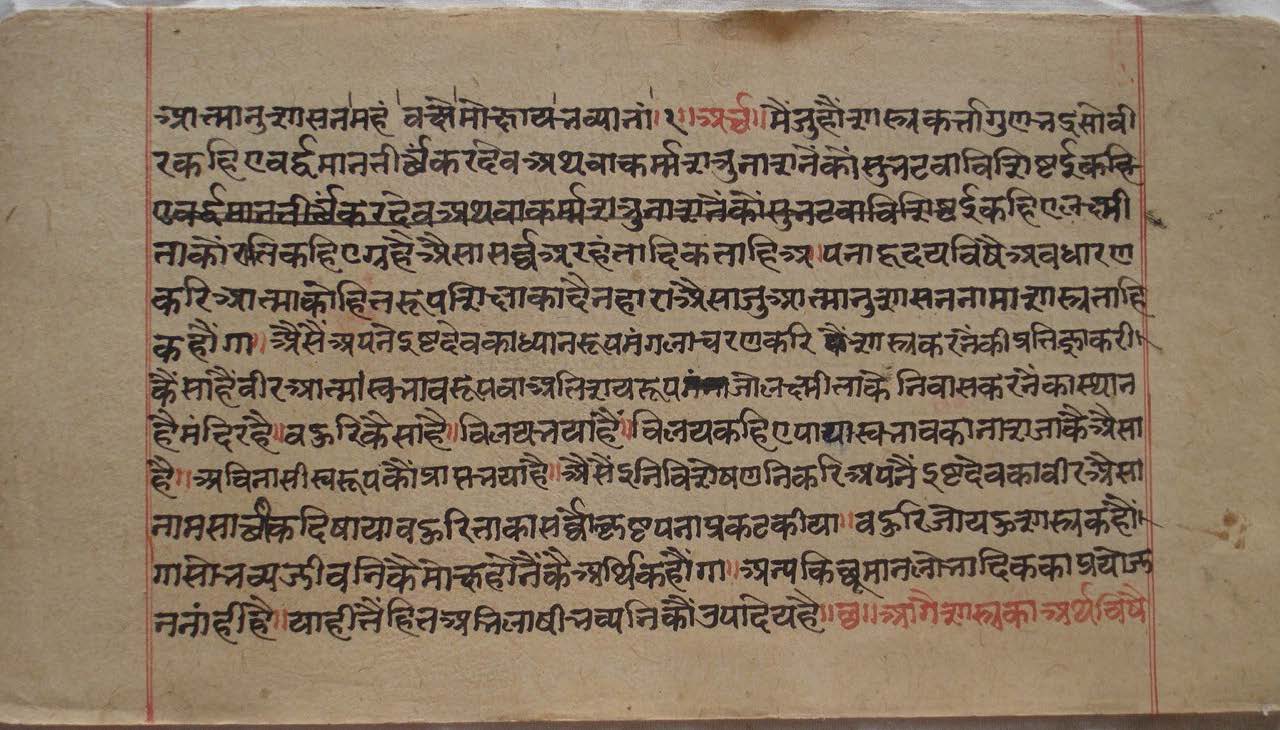 आत्मानुशासनमहं वक्ष्ये मोक्षाय भव्यानां।१॥अर्थ॥मैं जु हौं शास्त्रकर्त्ता गुणभद्र सो वी
र कहिए वर्द्धमान तीर्थंकर देव अथवा कर्म्म शत्रु नाशनै कौं सुभट वा विशिष्ट ई कहि
ए वर्द्धमान तीर्थंकर देव अथवा कर्म्म शत्रु नाशनै कौं सुभट वा विशिष्ट ई कहिए लक्ष्मी
ताकौं राति कहिए ग्रहै अैसा सर्व्व अरहंतादिक ताहि अ।पना हृदय विषै अवधारण
करि आत्मा कौ हित रूप शिक्षा का दैनहारा अैसा जु आत्मानुशासन नामा शास्त्र ताहि
कहौंगा॥अैसैं अपने इष्टदेव का ध्यान रूप मंगलाचरण करि शास्त्र करनै की प्रतिज्ञा करी।
कैसा है वीर आत्मा स्वभाव रूप वा अतिशय रूप जो लक्ष्मी ताकै निवास करनै का स्थान
है मंदिर है॥बहुरि कैसा है॥विलय भया है॥विलय कहिए पाया स्वभाव का नाश जाकै अैसा
है॥अविनासी स्वरूप कौं प्राप्त भया है॥अैसैं इनि विशेषणनि करि अपनै इष्टदेव का वीर अैसा
नाम सार्थक दिषाया बहुरि ताका सर्वोत्कृष्टपना प्रकट कीया॥बहुरि जो यहु शास्त्र कहौं।
गा सो भव्य जीवनि कै मोक्ष होनैं कै अर्थि कहौंगा॥अन्य किछू मान लोभादिक का प्रयोज
न नांही है॥याही तैं हित अभिलाषी भव्यनि कौं उपादेय है॥छ॥आगै शास्त्र का अर्थ विषै